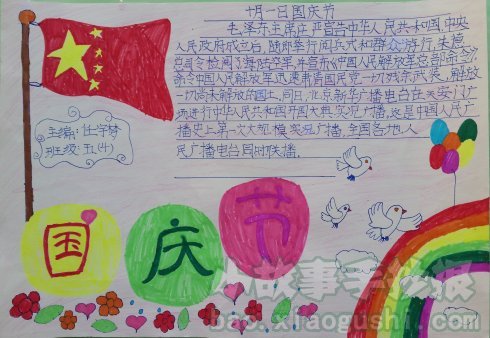 十月一日国庆节
毛泽东主席庄严宣告中华人民共和国,中央
人民政府成立后,随即举行阅兵式和群众游行,朱德
总司令检阅了海陆空军,并宣布《中国人民解放军总部命令》
命令中国人民解放军迅速肃清国民党一切残余武装,解放
一切尚未解放的国土,同日,北京新华广播电台在天安门广
场进行中华人民共和国开国大典实况广播,这是中国人民广
播史上第一次大规模实况广播,全国各地人
民广播电台同时联播.
主编:
班级:五(4)
国庆节
小故事手抄报
bao.xiaogushi.com